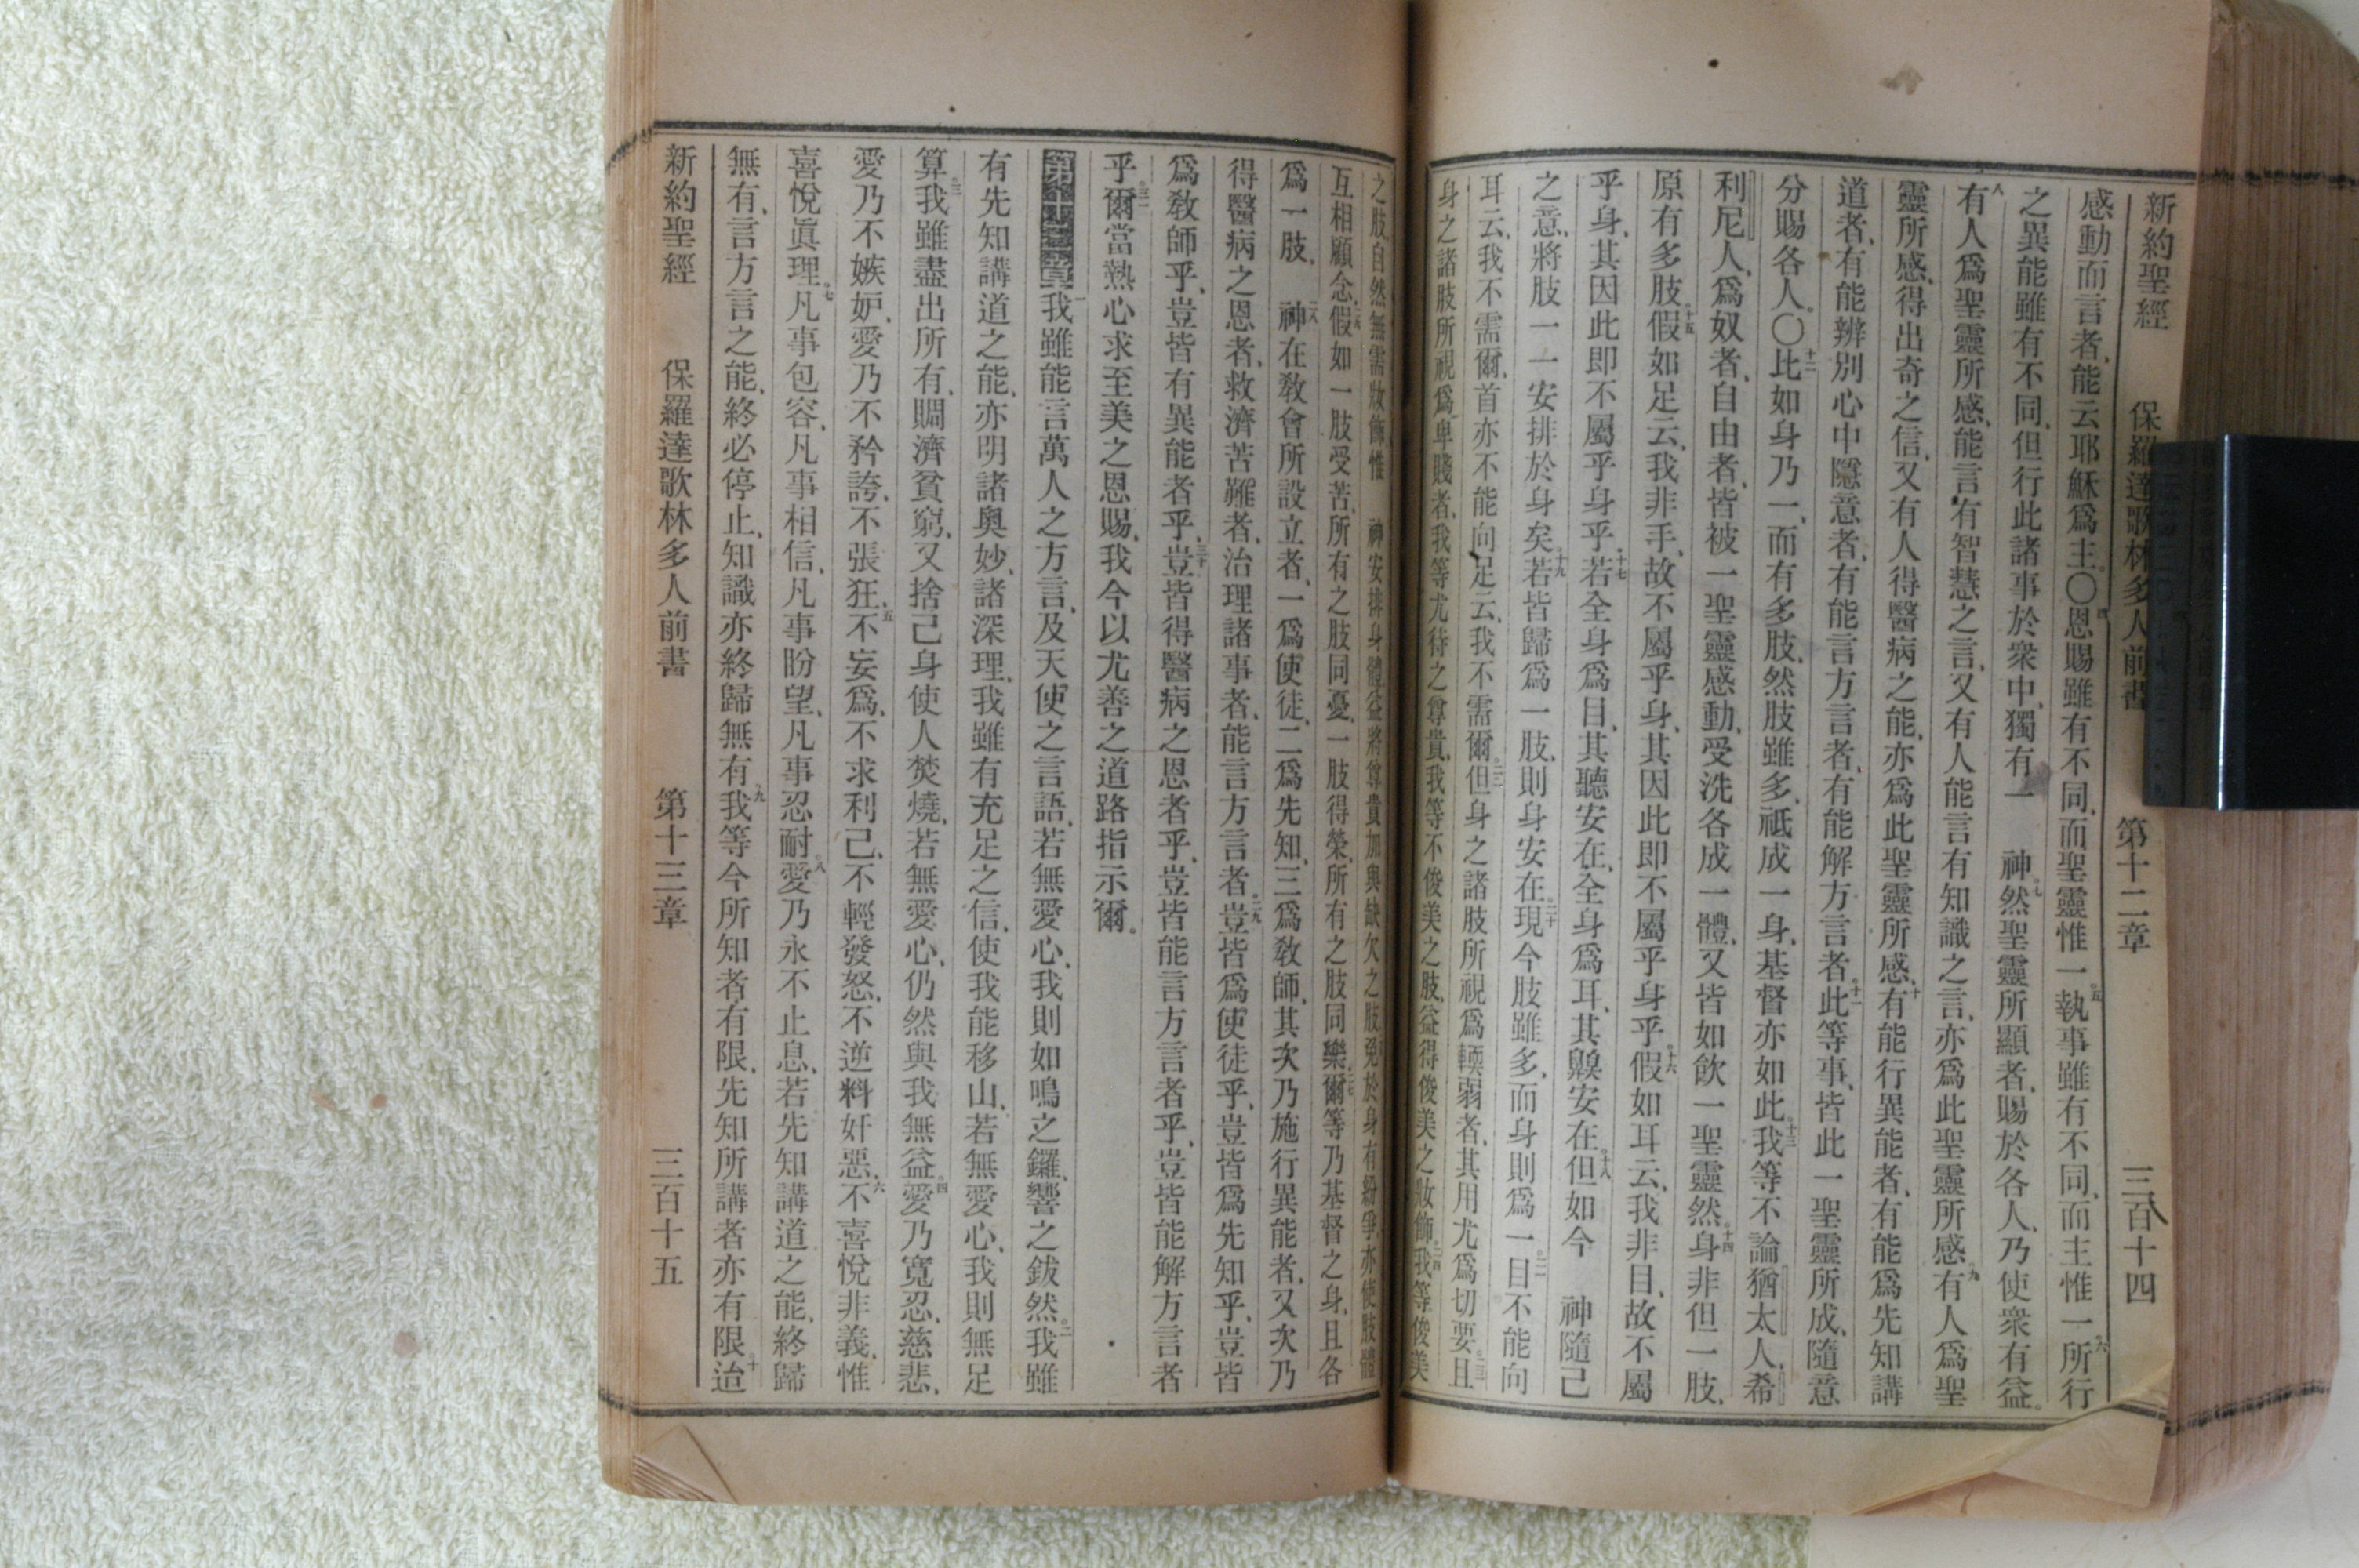 新約聖經 保羅達歌林多人前書 第十二章 三百十四
感動而言者、能云耶穌爲主。〇四恩賜雖有不同、而聖靈惟一。五執事雖有不同、而主惟一。六所行
之異能雖有不同、但行此諸事於衆中、獨有一 神。七然聖靈所顯者、賜於各人、乃使衆有益。
八有人爲聖靈所感、能言有智慧之言、又有人能言有知識之言、亦爲此聖靈所感、九有人爲聖
靈所感、得出奇之信、又有人得醫病之能、亦爲此聖靈所感、十有能行異能者、有能爲先知講
道者、有能辨別心中隱意者、有能言方言者、有能解方言者。十一此等事、皆此一聖靈所成、隨意
分賜各人。〇十二比如身乃一、而有多肢、然肢雖多、祇成一身、基督亦如此。十三我等不論猶太人、希
利尼人、爲奴者、自由者、皆被一聖靈感動、受洗各成一體、又皆如飲一聖靈然。十四身非但一肢、
原有多肢。十五假如足云、我非手、故不屬乎身、其因此即不屬乎身乎。十六假如耳云、我非目、故不屬
乎身、其因此即不屬乎身乎。十七若全身爲目、其聽安在、全身爲耳、其臭安在。十八但如今 神隨己
之意、將肢一一安排於身矣。十九若皆歸爲一肢、則身安在。二十現今肢雖多、而身則爲一。二一目不能向
耳云、我不需爾、首亦不能向足云、我不需爾。二二但身之諸肢所視爲輭弱者、其用尤爲切要。二三且
身之諸肢所視爲卑賤者、我等尤待之尊貴、我等不俊美之肢、益得俊美之妝飾。二四我等俊美
之肢自然無需妝飾、惟 神安排身體、益將尊貴加與缺欠之肢、免於身有紛爭、亦使肢體
互相顧念。二六假如一肢受苦、所有之肢同憂、一肢得榮、所有之肢同樂。二七爾等乃基督之身、且各
爲一肢、 二八神在敎會所設立者、一爲使徒、二爲先知、三爲敎師、其次乃施行異能者、又次乃
得醫病之恩者、救濟苦難者、治理諸事者、能言方言者。二九豈皆爲使徒乎、豈皆爲先知乎、豈皆
爲敎師乎、豈皆有異能者乎、三十豈皆得醫病之恩者乎、豈皆能言方言者乎、豈皆能解方言者
乎。三一爾當熱心求至美之恩賜、我今以尤善之道路指示爾。
第十三章 一我雖能言萬人之方言、及天使之言語、若無愛心、我則如鳴之鑼、響之鈸然。二我雖
有先知講道之能、亦明諸奧妙、諸深理、我雖有充足之信、使我能移山、若無愛心、我則無足
算。三我雖盡出所有、賙濟貧窮、又捨己身使人焚燒、若無愛心、仍然與我無益。四愛乃寬忍、慈悲、
愛乃不嫉妒、愛乃不矜誇、不張狂、五不妄爲、不求利己、不輕發怒、不逆料奸惡、六不喜悅非義、惟
喜悅眞理。七凡事包容、凡事相信、凡事盼望、凡事忍耐。八愛乃永不止息、若先知講道之能、終歸
無有、言方言之能、終必停止、知識亦終歸無有。九我等今所知者有限、先知所講者亦有限。十迨
新約聖經 保羅達歌林多人前書 第十三章 三百十五